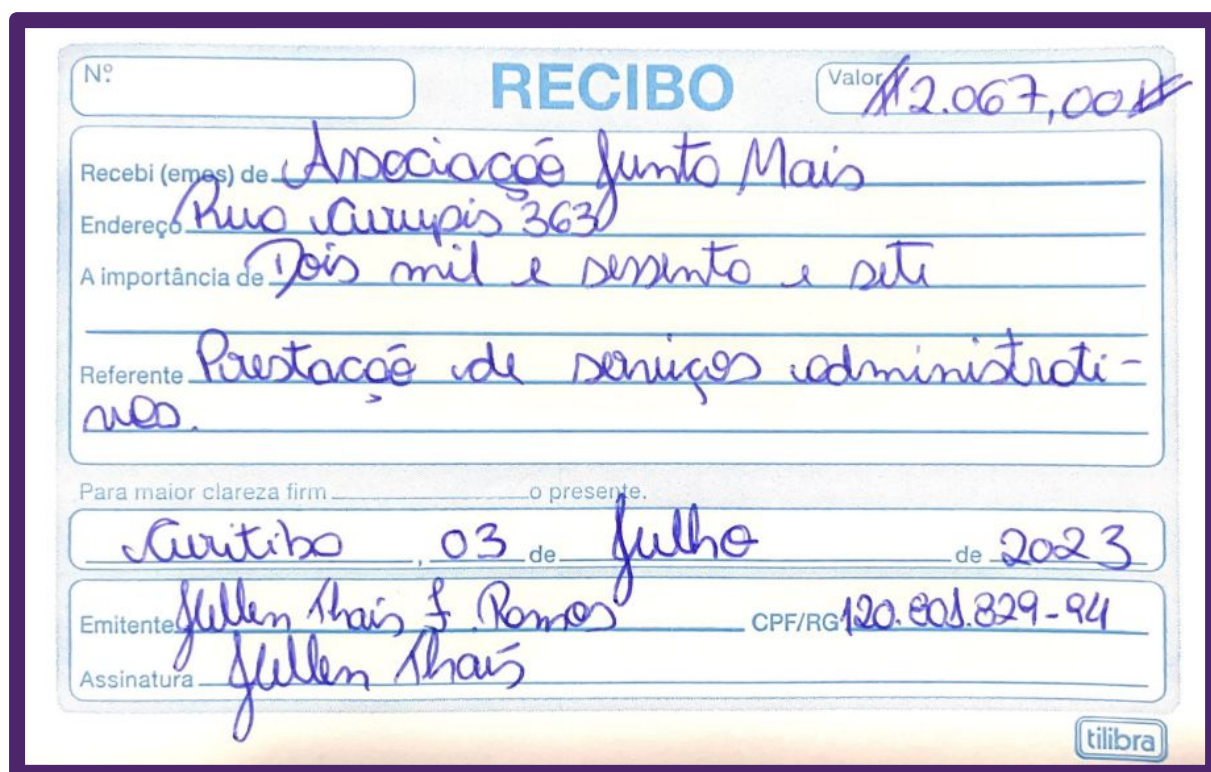 Nº
RECIBO
Valor $2.067,00
Recebi (emos) de Associação Junto Mais
Endereço Rua Curupis 363
A importância de Dois mil e sessenta e sete
Referente Prestação de serviços administrati-
vos.
Para maior clareza firm o presente.
Curitiba, 03 de Julho de 2023
Emitente Jullen Thais J. Ramos CPF/RG 120.801.829-94
Assinatura Jullen Thais
tilibra